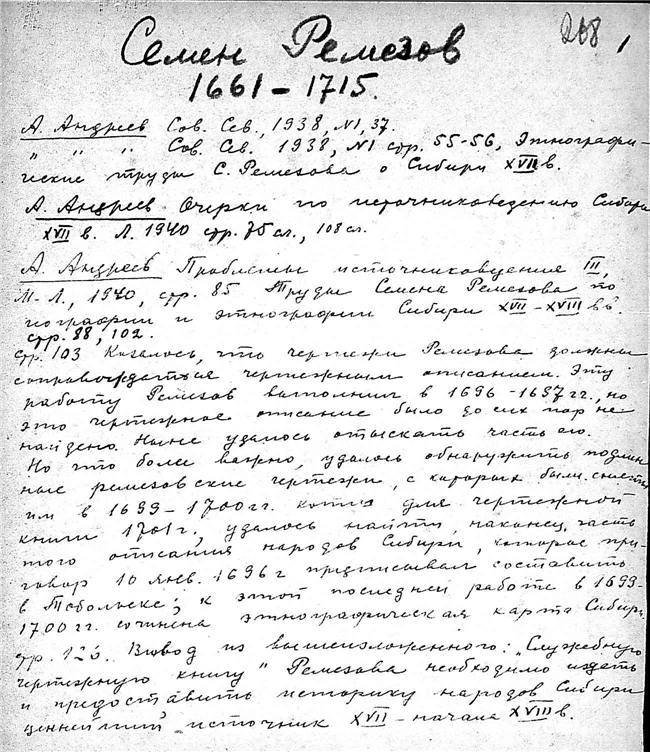 268 1
Семен Ремезов
1661 – 1715.
А. Андреев Сов. Сев., 1938, N1, 37.
„ „ „ Сов. Сев. 1938, N1 стр. 55-56, Этнографи-
ческие труды С. Ремезова о Сибири XVII в.
А. Андреев Очерки по источниковедению Сибири
XVII в. Л. 1940 стр. 75 сл., 108 сл.
А. Андреев Проблемы источниковедения III,
М.-Л., 1940, стр. 85 Труды Семена Ремезова по
географии и этнографии Сибири XVII – XVIII вв.
стр. 88, 102.
стр. 103 Казалось, что чертежи Ремезова должны
сопровождаться чертежным описанием. Эту
работу Ремезов выполнил в 1696 - 1697 гг., но
это чертежное описание было до сих пор не
найдено. Ныне удалось отыскать часть его.
Но что более важно, удалось обнаружить подлин-
ные ремезовские чертежи, с которых были сняты
им в 1699 – 1700 гг. копии для чертежной
книги 1701 г., удалось найти, наконец, часть
того описания народов Сибири, которое при-
говор 10 янв. 1696 г предписывал составить
в Тобольске; к этой последней работе в 1699-
1700 гг. сочинена этнографическая карта Сибири.
стр. 123. Вывод из вышеизложенного: „Служебную
чертежную книгу" Ремезова необходимо издать
и предоставить историку народов Сибири
ценнейший источник XVII – начала XVIII в.